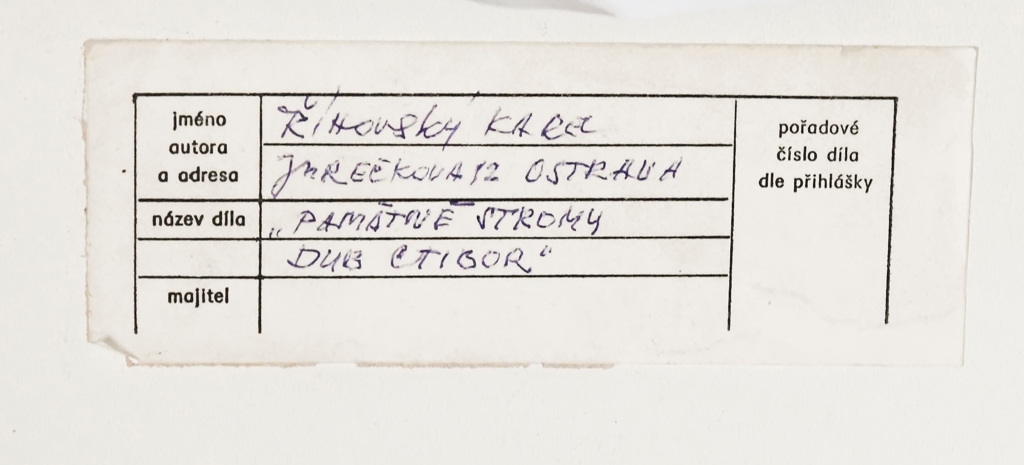 jméno
autora
a adresa
Říhovský Karel
Jurečkova 12 OSTRAVA
název díla
„PAMÁTNÉ STROMY
DUB CTIBOR“
majitel
pořadové
číslo díla
dle přihlášky